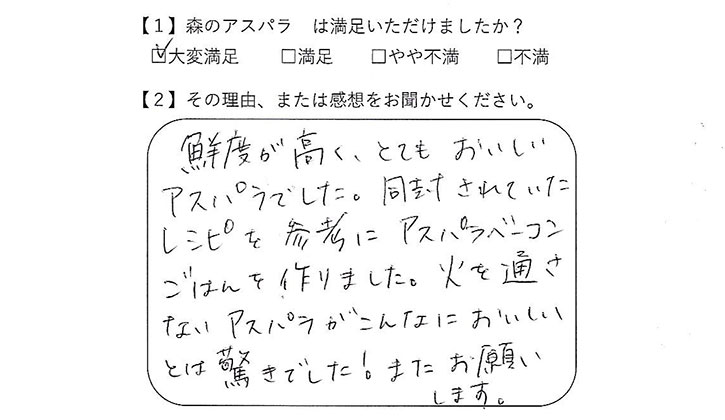 【1】森のアスパラ　は満足いただけましたか？
☑大変満足　□満足　□やや不満　□不満
【2】その理由、または感想をお聞かせください。
鮮度が高く、とても おいしい
アスパラでした。同封されていた
レシピを 参考に アスパラベーコン
ごはんを作りました。火を通さ
ない アスパラがこんなに おいしい
とは驚きでした！また お願い
します。